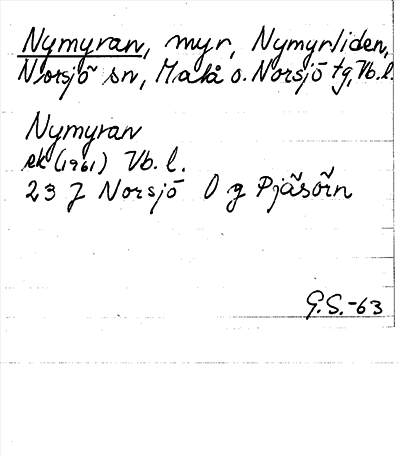 Nymyran, myr, Nymyrliden,
Norsjö sn, Malå o. Norsjö tg, Vb. l.
Nymyran
ek (1961) Vb. l.
23 J Norsjö 0 g Pjäsörn
G.S.-63